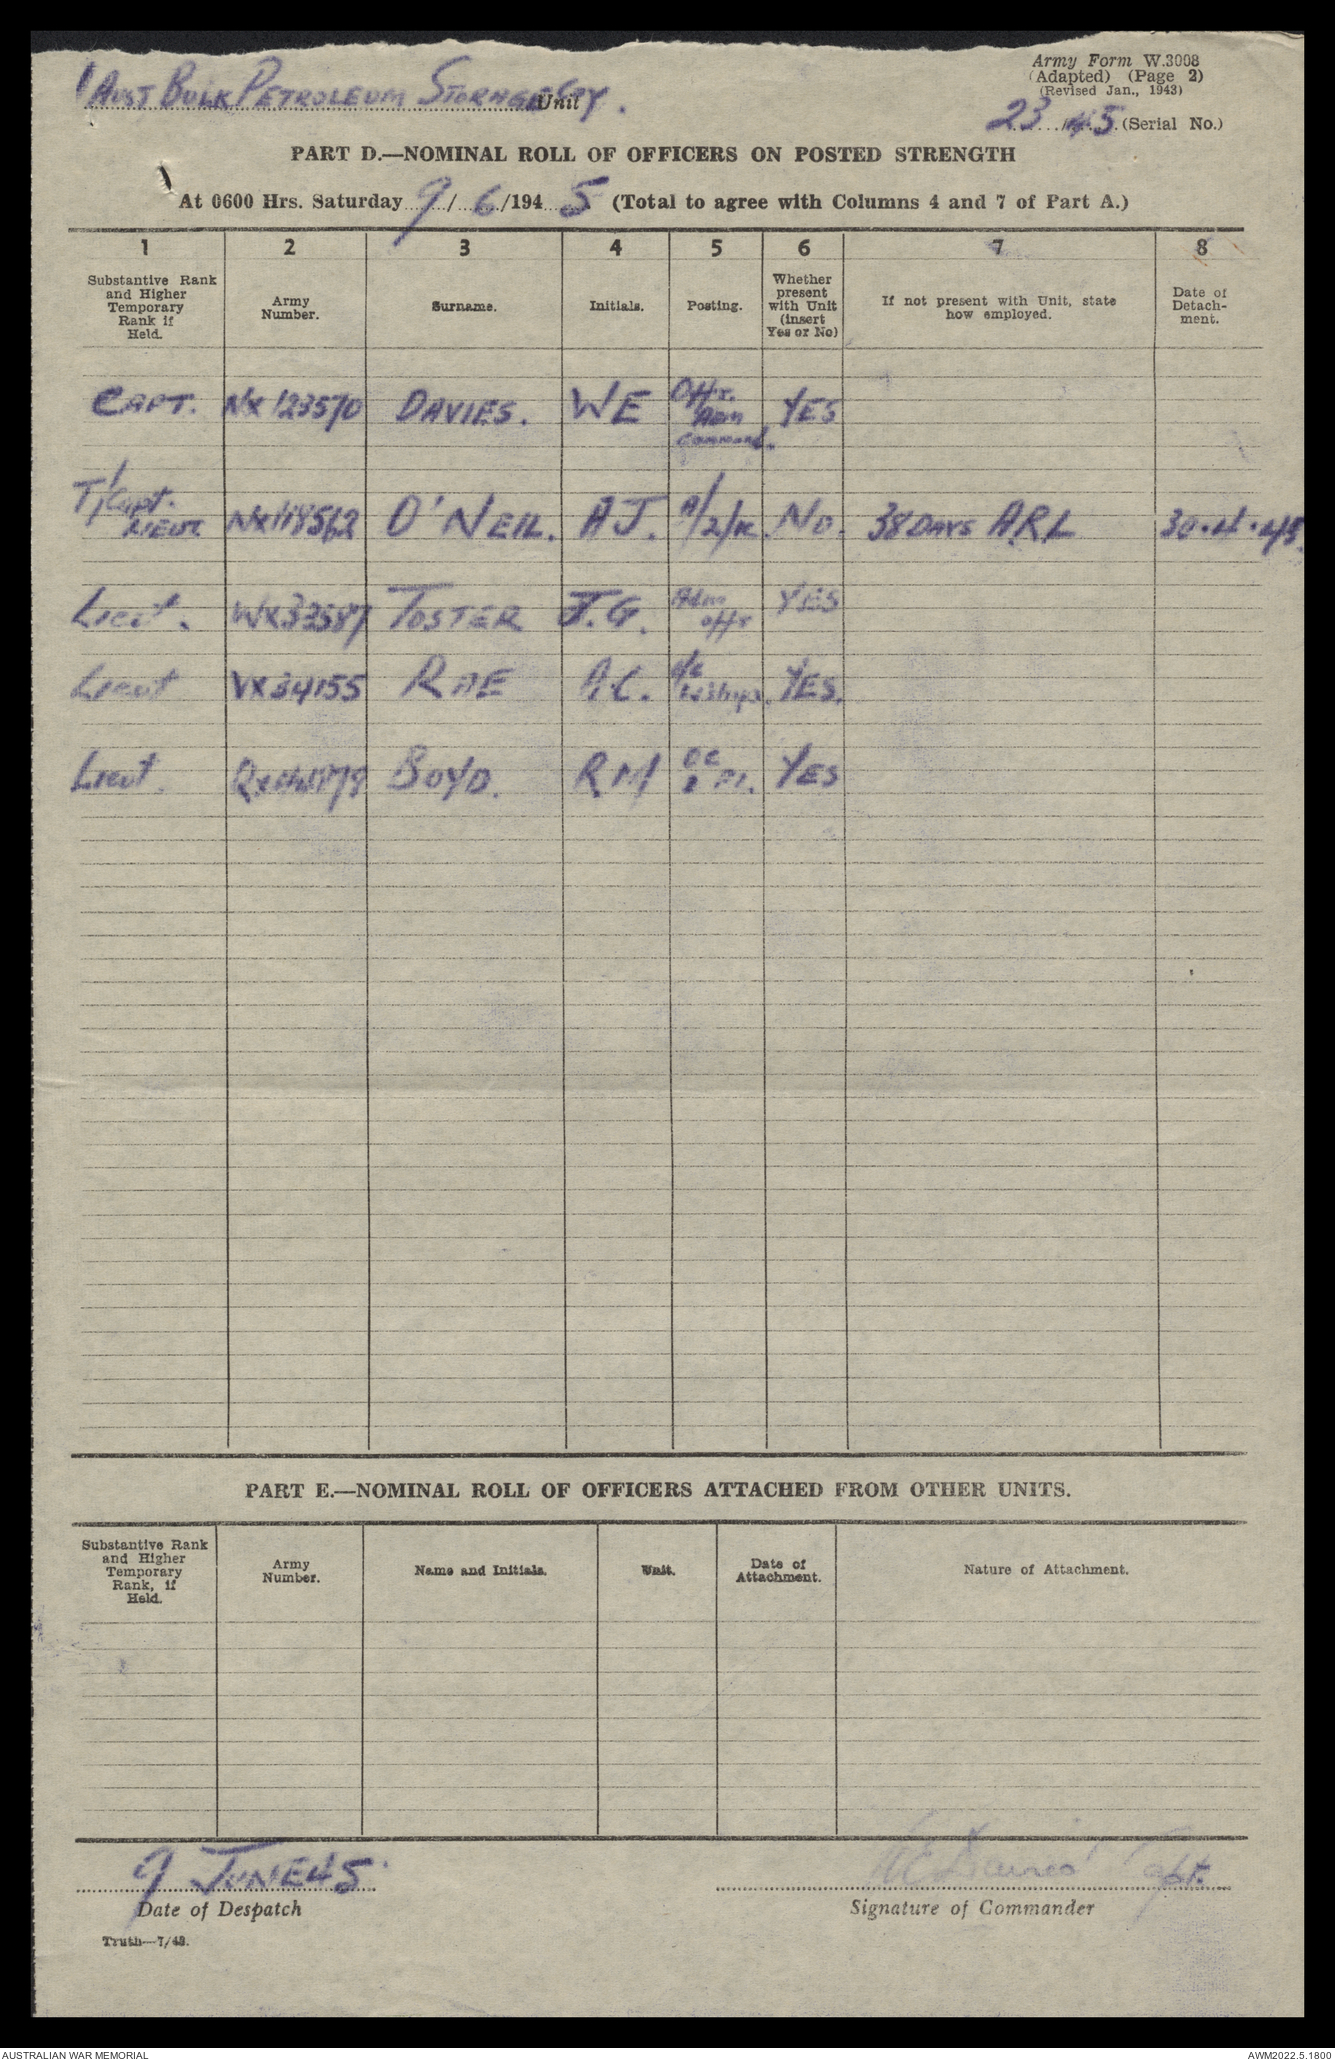 Army Form W.3008
(Adapted) (Page 2)
(Revised Jan., 1943)
1 AUST BULK PETROLEUM STORAGE COY. Unit
23 / 45 (Serial No.)
PART D.—NOMINAL ROLL OF OFFICERS ON POSTED STRENGTH
At 0600 Hrs. Saturday 9/6/1945 (Total to agree with Columns 4 and 7 of Part A.)
1 2 3 4 5 6 7 8
Substantive Rank and Higher Temporary Rank if Held.
Army Number.
Surname.
Initials.
Posting.
Whether present with Unit (insert Yes or No)
If not present with Unit, state how employed.
Date of Detach-ment.
CAPT. NX123570 DAVIES. W E Offr. Adm Command. YES
T/Capt. LIEUT. NX118562 O'NEIL. A J. 2/ic. NO. 38 DAYS ARL 30.4.45.
Lieut. WX33587 TOSTER J.G. Adm offr YES
Lieut VX34155 RAE A.C. YES.
Lieut. BOYD. R M OC Pl. YES
PART E.—NOMINAL ROLL OF OFFICERS ATTACHED FROM OTHER UNITS.
Substantive Rank and Higher Temporary Rank, if Held.
Army Number.
Name and Initials.
Unit.
Date of Attachment.
Nature of Attachment.
9 JUNE 45
Date of Despatch
WE Davies Capt.
Signature of Commander
Truth—7/43.
AUSTRALIAN WAR MEMORIAL
AWM2022.5.1800